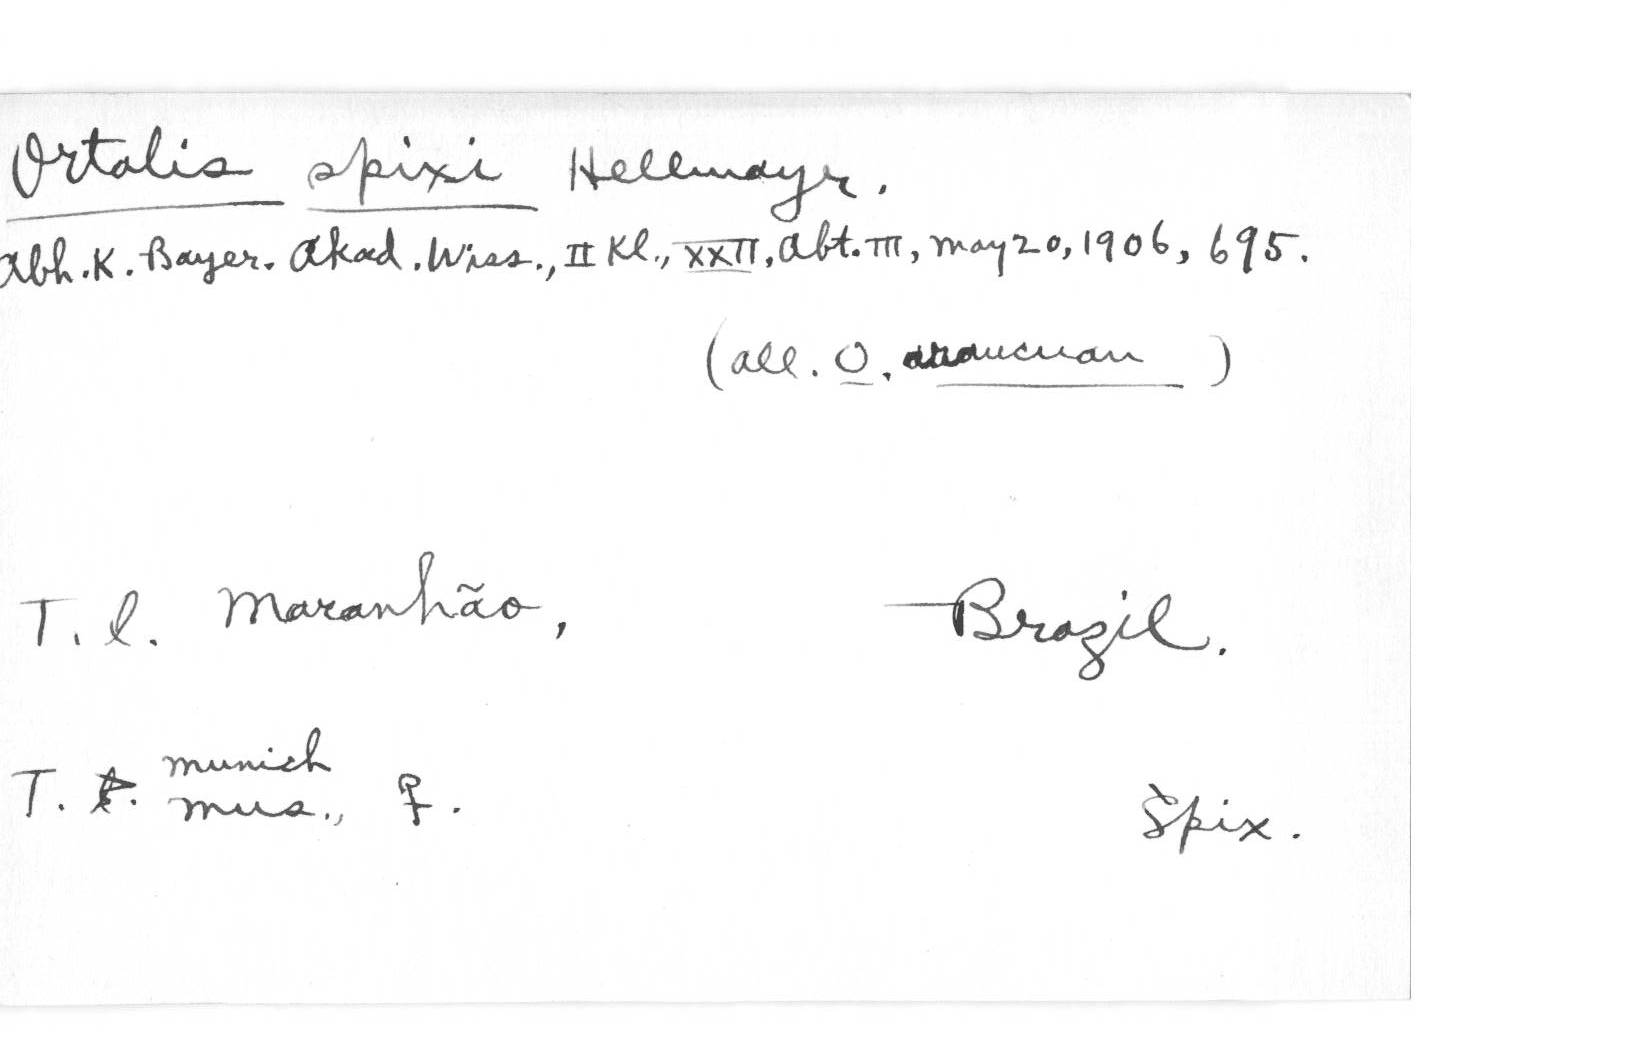 Ortalis spixi Hellmayr.
Abh. K. Bayer. Akad. Wiss., II Kl., XXII, Abt. III, May 20, 1906, 695.
(all. O. araucuan )
T. l. Maranhão, Brazil.
T. t. Munich Mus., ♀. Spix.